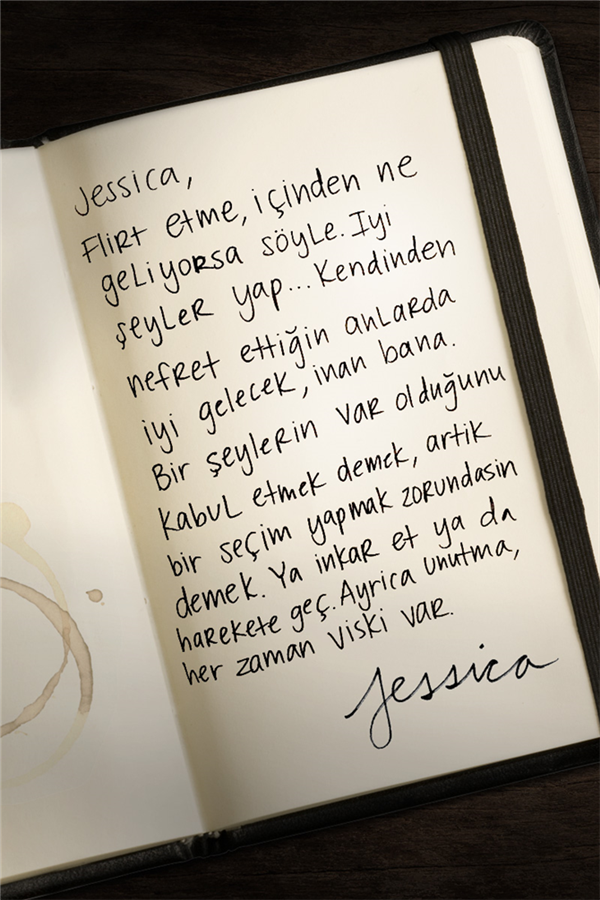 Jessica,
Flirt etme, içinden ne
geliyorsa söyle. Iyi
şeyler yap... Kendinden
nefret ettiğin anlarda
iyi gelecek, inan bana.
Bir şeylerin var olduğunu
kabul etmek demek, artik
bir seçim yapmak zorundasin
demek. Ya inkar et ya da
harekete geç. Ayrica unutma,
her zaman viski var.
Jessica